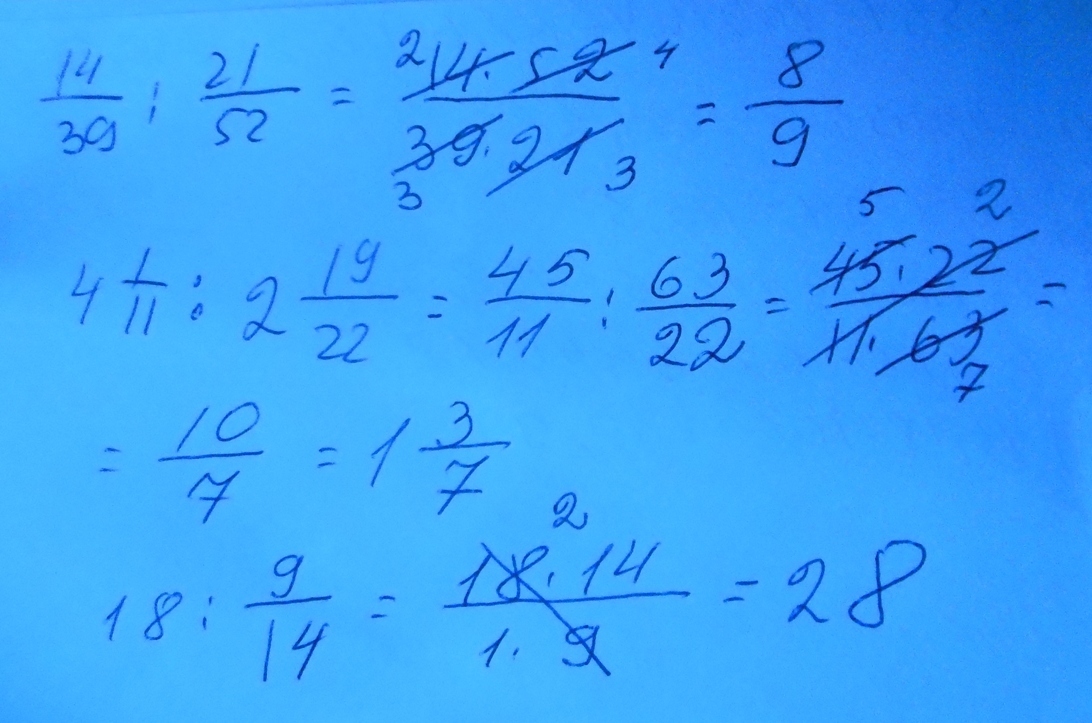 14/39 : 21/52 = 2 14 · 52 4 / 3 39 · 21 3 = 8/9
4 1/11 : 2 19/22 = 45/11 : 63/22 = 5 45 · 22 2 / 11 · 63 7 =
= 10/7 = 1 3/7
18 : 9/14 = 2 18 · 14 / 1 · 9 = 28